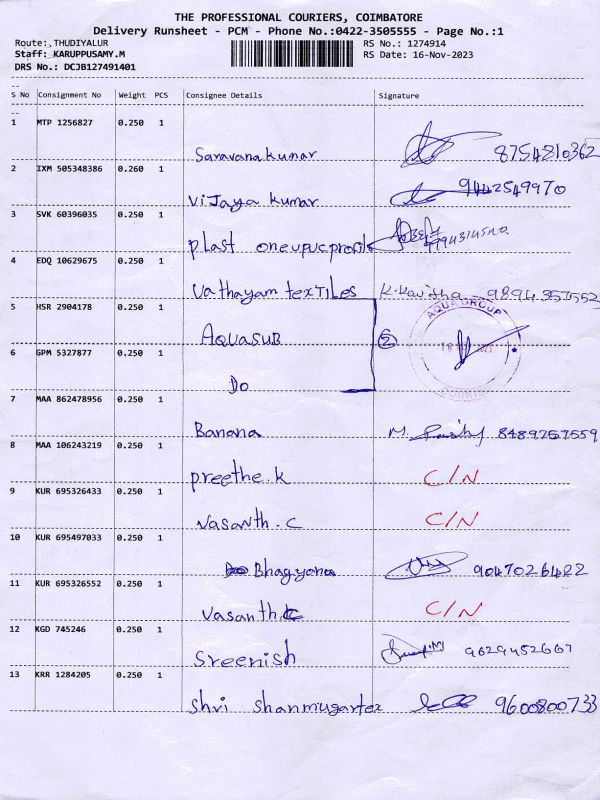 THE PROFESSIONAL COURIERS, COIMBATORE
Delivery Runsheet - PCM - Phone No.:0422-3505555 - Page No.:1
Route:,THUDIYALUR RS No.: 1274914
Staff: KARUPPUSAMY.M RS Date: 16-Nov-2023
DRS No.: DCJB127491401
S No Consignment No Weight PCS Consignee Details Signature
1 MTP 1256827 0.250 1
Saravanakumar 8754810362
2 IXM 505348386 0.260 1
Vijaya kumar 9442549970
3 SVK 60396035 0.250 1
plast oneupvcprofile
4 EDQ 10629675 0.250 1
Vathayam texTiLes K.Kavitha 9894357552
5 HSR 2904178 0.250 1
AQUASUB 2 AQUA GROUP
6 GPM 5327877 0.250 1
Do
7 MAA 862478956 0.250 1
Banana M. 8489757559
8 MAA 106243219 0.250 1
preethe.k C/N
9 KUR 695326433 0.250 1
Vasanth.C C/N
10 KUR 695497033 0.250 1
Bhagyana 9047026422
11 KUR 695326552 0.250 1
Vasanth.C C/N
12 KGD 745246 0.250 1
Sreenish 9629452667
13 KRR 1284205 0.250 1
Shri Shanmugartex 9600800733